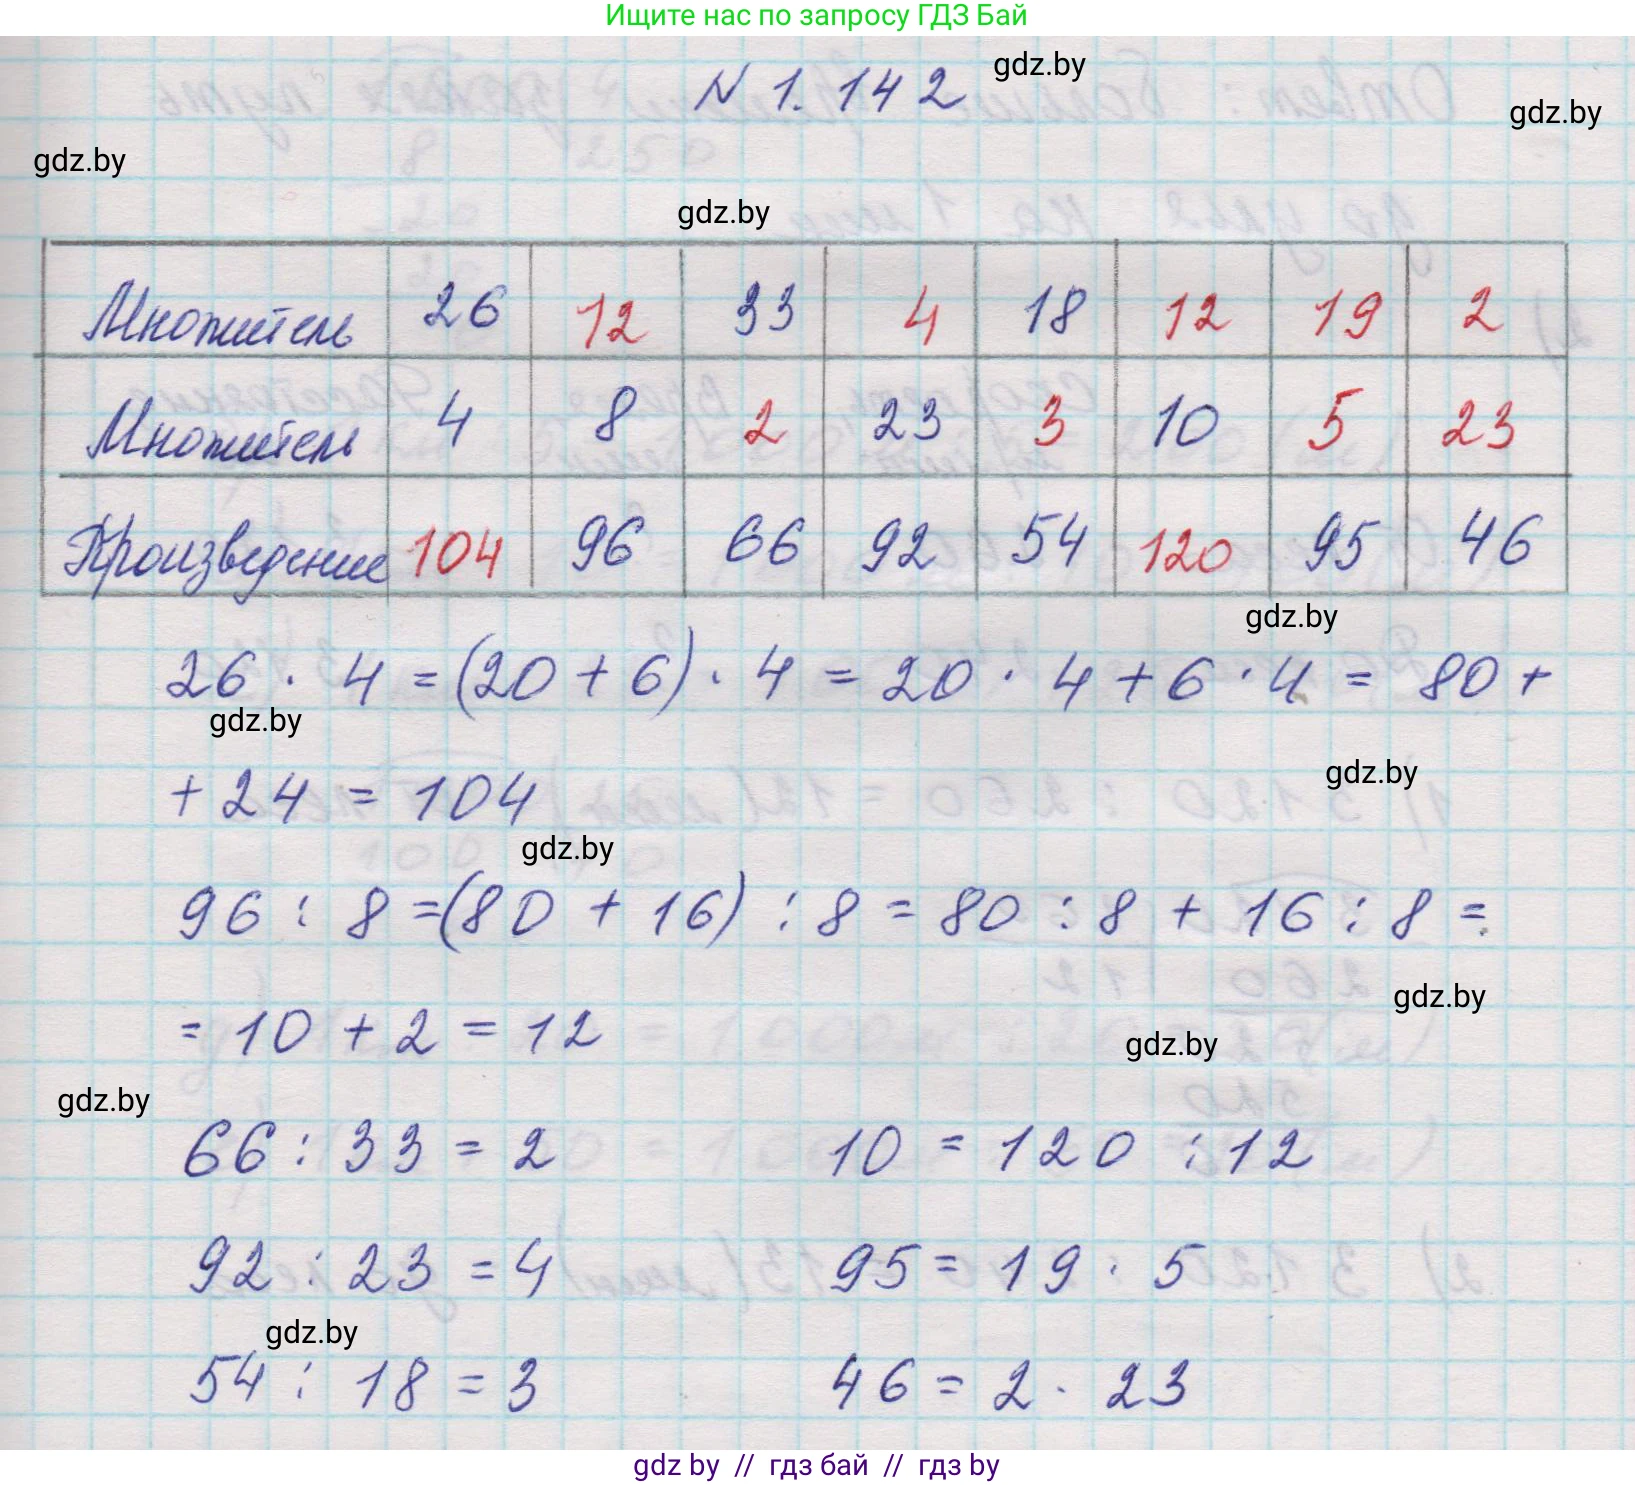 Ищите нас по запросу ГДЗ Бай
N 1.142 gdz.by
gdz.by
gdz.by
gdz.by
Множитель 26 12 33 4 18 12 19 2
Множитель 4 8 2 23 3 10 5 23
Произведение 104 96 66 92 54 120 95 46
gdz.by
26 · 4 = (20 + 6) · 4 = 20 · 4 + 6 · 4 = 80 +
gdz.by
gdz.by
+ 24 = 104
gdz.by
96 : 8 = (80 + 16) : 8 = 80 : 8 + 16 : 8 =
gdz.by
= 10 + 2 = 12
gdz.by
gdz.by
66 : 33 = 2 10 = 120 : 12
92 : 23 = 4 95 = 19 · 5
gdz.by
54 : 18 = 3 46 = 2 · 23
gdz by // гдз бай // гдз by